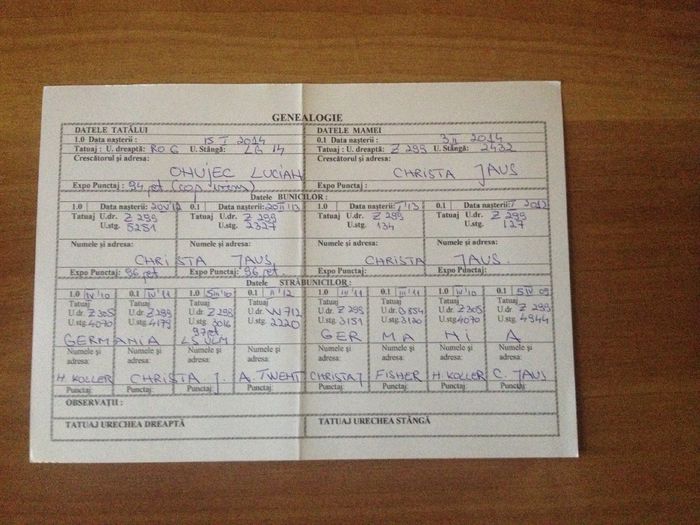 GENEALOGIE
DATELE TATĂLUI DATELE MAMEI
1.0 Data nașterii : 15 I 2014 0.1 Data nașterii : 3 II 2014
Tatuaj : U. dreaptă: RO G U. Stângă: LG 14 Tatuaj : U. dreaptă: Z 299 U. Stângă: 2432
Crescătorul și adresa: Crescătorul și adresa:
OHUJEC LUCIAN CHRISTA JAUS
Expo Punctaj : 94 pct Expo Punctaj :
Datele BUNICILOR :
1.0 Data nașterii: 0.1 Data nașterii: 20 II '13 1.0 Data nașterii: I '13 0.1 Data nașterii: I 2012
Tatuaj U.dr. Z 299 Tatuaj U.dr. Z 299 Tatuaj U.dr. Z 299 Tatuaj U.dr. Z 299
U.stg. 5251 U.stg. 2327 U.stg. 134 U.stg. 127
Numele și adresa: Numele și adresa: Numele și adresa: Numele și adresa:
CHRISTA JAUS CHRISTA JAUS
Expo Punctaj: 96 pct Expo Punctaj: 96 pct. Expo Punctaj: Expo Punctaj:
Datele STRĂBUNICILOR :
1.0 IV '10 0.1 IV '11 1.0 0.1 II '12 1.0 III '11 0.1 III '11 1.0 IV '10 0.1
Tatuaj Tatuaj Tatuaj Tatuaj Tatuaj Tatuaj Tatuaj Tatuaj
U.dr Z 305 U.dr. Z 299 U.dr. Z 298 U.dr. W 712 U.dr. Z 299 U.dr. D 854 U.dr. Z 305 U.dr. Z 299
U.stg 4070 U.stg 4179 U.stg 3016 U.stg. 2220 U.stg. 3151 U.stg. 3120 U.stg. 4070 U.stg. 4944
97 pct
GERMANIA GERMANIA
Numele și Numele și Numele și Numele și Numele și Numele și Numele și Numele și
adresa: adresa: adresa: adresa: adresa: adresa: adresa: adresa:
H. KOLLER CHRISTA J. CHRISTA J FISHER H. KOLLER C. JAUS
Punctaj: Punctaj: Punctaj: Punctaj: Punctaj: Punctaj: Punctaj: Punctaj:
OBSERVAȚII :
TATUAJ URECHEA DREAPTĂ TATUAJ URECHEA STÂNGĂ